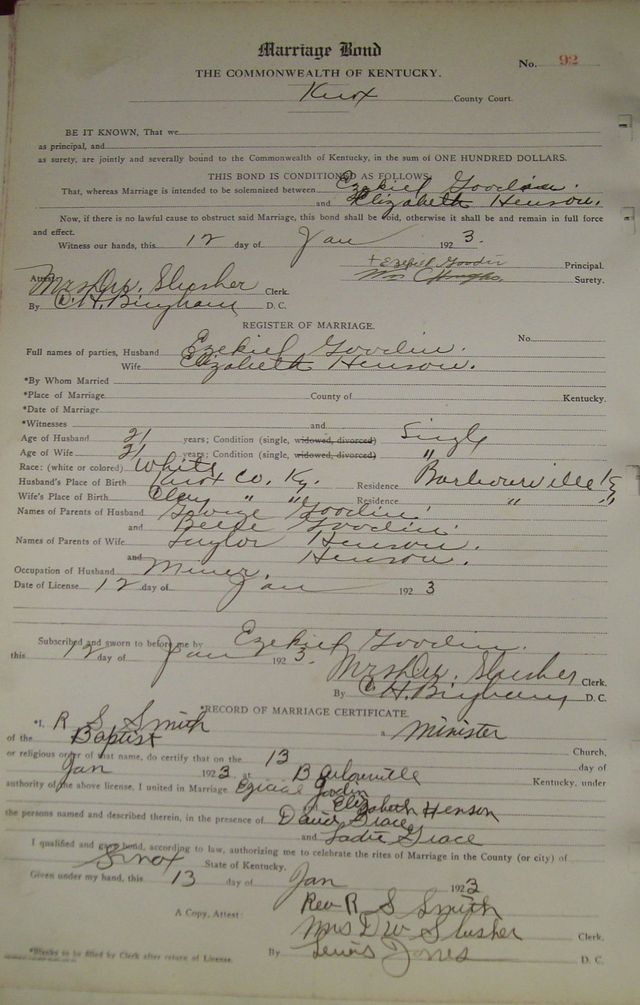 Marriage Bond
No. 92
THE COMMONWEALTH OF KENTUCKY.
Knox County Court.
BE IT KNOWN, That we
as principal, and
as surety, are jointly and severally bound to the Commonwealth of Kentucky, in the sum of ONE HUNDRED DOLLARS.
THIS BOND IS CONDITIONED AS FOLLOWS,
That, whereas Marriage is intended to be solemnized between Ezekiel Goodin.
and Elizabeth Henson.
Now, if there is no lawful cause to obstruct said Marriage, this bond shall be void, otherwise it shall be and remain in full force
and effect.
Witness our hands, this 12 day of Jan 1923.
+ Ezekiel Goodin Principal.
Surety.
Attest
Mrs D.W. Slusher Clerk.
By C. H. Bingham D. C.
REGISTER OF MARRIAGE.
No.
Full names of parties, Husband Ezekiel Goodin.
Wife Elizabeth Henson.
*By Whom Married
*Place of Marriage County of Kentucky.
*Date of Marriage
*Witnesses and
Age of Husband 21 years; Condition (single, widowed, divorced) Single
Age of Wife 21 years; Condition (single, widowed, divorced) "
Race: (white or colored) White
Husband's Place of Birth Knox Co. Ky. Residence Barbourville Ky
Wife's Place of Birth Clay " " Residence " "
Names of Parents of Husband George Goodin.
and Goodin.
Names of Parents of Wife Taylor Henson.
and Henson.
Occupation of Husband Miner.
Date of License 12 day of Jan 1923
Subscribed and sworn to before me by Ezekiel Goodin.
this 12 day of Jan 1923.
Mrs D.W. Slusher Clerk.
By C. H. Bingham D. C.
*RECORD OF MARRIAGE CERTIFICATE.
*I, R S Smith a Minister
of the Baptist Church,
or religious order of that name, do certify that on the 13 day of
Jan 1923 at Kentucky, under
authority of the above license, I united in Marriage Goodin
Elizabeth Henson
the persons named and described therein, in the presence of David Grace
and Sadie Grace
I qualified and gave bond, according to law, authorizing me to celebrate the rites of Marriage in the County (or city) of
Knox State of Kentucky.
Given under my hand, this 13 day of Jan 1923
Rev R S Smith
A Copy, Attest: Mrs D W Slusher Clerk.
By Lewis Jones D. C.
*Blanks to be filled by Clerk after return of License.